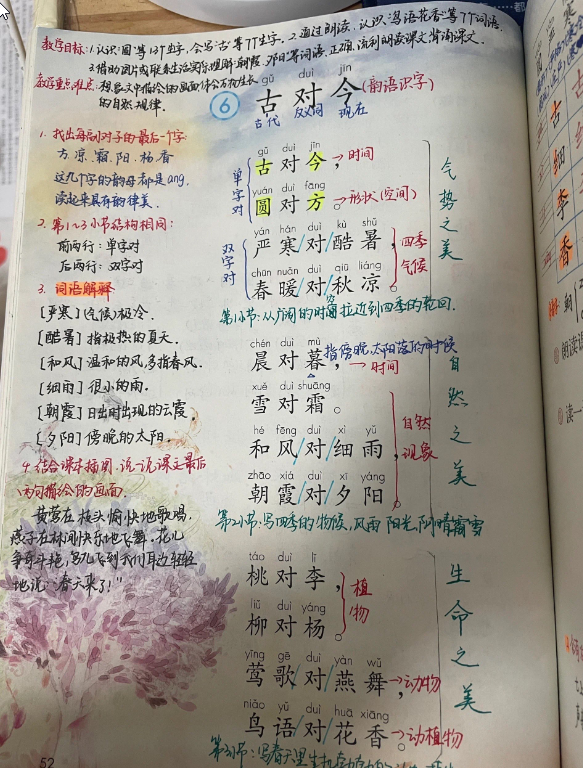 教学目标：1.认识"圆"等12个生字，会写"古"等7个生字。2.通过朗读，认识"鸟语花香"等7个词语。
3.借助图片或联系生活实际理解"朝霞、夕阳"等词语。正确、流利朗读课文背诵课文。
教学重点难点：想象文中描绘的画面体会万物生长
的自然规律。
gǔ duì jīn
6 古对今(韵语识字)
古代 反义词 现在
1. 找出每副对子的最后一个字：
方.凉.霜.阳.杨.香
这几个字的韵母都是ang.
读起来具有韵律美.
2. 第1.2.3小节结构相同：
前两行：单字对
后两行：双字对
3. 词语解释
[严寒]气候极冷.
[酷暑]指极热的夏天.
[和风]温和的风，多指春风.
[细雨]很小的雨.
[朝霞]日出时出现的云霞.
[夕阳]傍晚的太阳.
4. 结合课本插图，说一说课文最后
两句描绘的画面.
黄莺在枝头愉快地歌唱.
燕子在林间快乐地飞舞.花儿
争奇斗艳，鸟儿飞到我们耳边轻轻
地说："春天来了！"
52
单字对
gǔ duì jīn
古对今，→时间
yuán duì fāng
圆对方。→形状(空间)
双字对
yán hán duì kù shǔ
严寒/对/酷暑，
chūn nuǎn duì qiū liáng
春暖/对/秋凉。
四季
气候
气势之美
第1小节：从广阔的时空拉近到四季的轮回.
chén duì mù
晨对暮，指傍晚，太阳落的时候
→时间
xuě duì shuāng
雪对霜。
hé fēng duì xì yǔ
和风/对/细雨，
zhāo xiá duì xī yáng
朝霞/对/夕阳。
自然
现象
自然之美
第2小节：写四季的物候，风雨 阳光，阴晴霜雪
táo duì lǐ
桃对李，
liǔ duì yáng
柳对杨。
植
物
yīng gē duì yàn wǔ
莺歌/对/燕舞，→动物
niǎo yǔ duì huā xiāng
鸟语/对/花香。→动植物
生命之美
第3小节：写春天里生机
古
细
李
香